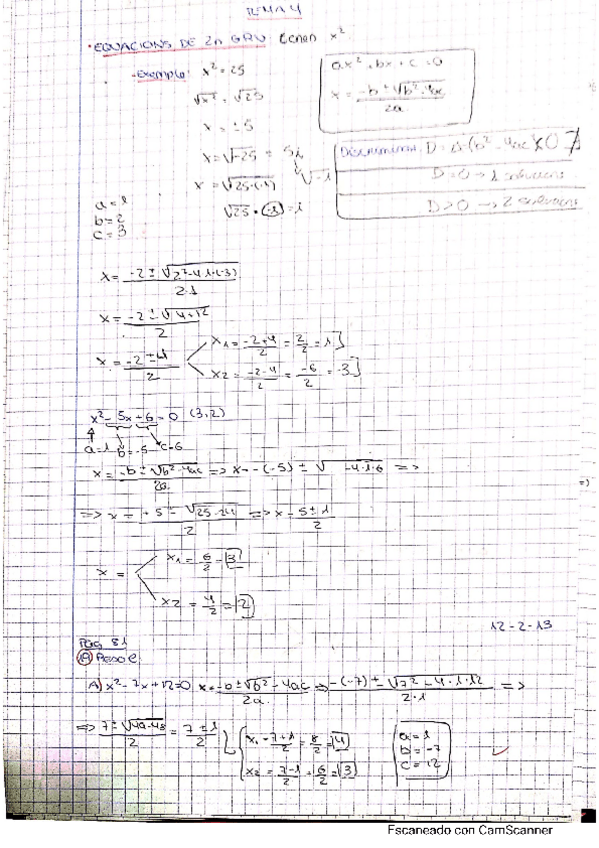 TEMA 4
· EQUACIONS DE 2n GRAU: tenen x²
- Exemple: x² = 25
√x² = √25
x = ±5
x = √-25 = 5i
x = √25·(-1) √-1
√25 · (-1) = i
ax² + bx + c = 0
x = -b ± √b² - 4ac / 2a
D = Δ (b² - 4ac) < 0
D = 0 → 1
D > 0 → 2 solucions
a = 1
b = 2
c = 3
x = -2 ± √2² - 4·1·(-3) / 2·1
x = -2 ± √4+12 / 2
x = -2 ± 4 / 2
x1 = -2+4 / 2 = 2/2 = 1
x2 = -2-4 / 2 = -6/2 = -3
x² - 5x + 6 = 0 (3,2)
a = 1 b = -5 c = 6
x = -b ± √b² - 4ac / 2a => x = -(-5) ± √ -4·1·6 =>
=> x = +5 ± √25-24 / 2 => x = 5 ± 1 / 2
x =
x1 = 6/2 = 3
x2 = 4/2 = 2
12-2-13
Pàg. 81
A) x² - 7x + 12 = 0 x = -b ± √b² - 4ac / 2a => -(-7) ± √7² - 4·1·12 / 2·1 =>
=> 7 ± √49-48 / 2 = 7 ± 1 / 2
x1 = 7+1 / 2 = 8/2 = 4
x2 = 7-1 / 2 = 6/2 = 3
a = 1
b = -7
c = 12
Escaneado con CamScanner